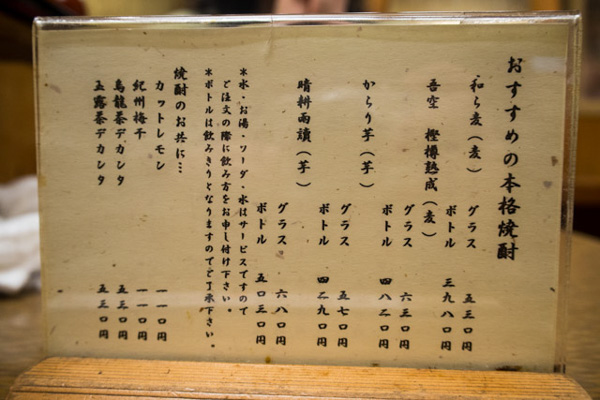 おすすめの本格焼酎
和ら麦(麦)
グラス 五三〇円
ボトル 三九八〇円
吾空 樫樽熟成(麦)
グラス 六三〇円
ボトル 四八二〇円
からり芋(芋)
グラス 五七〇円
ボトル 四二九〇円
晴耕雨讀(芋)
グラス 六八〇円
ボトル 五〇三〇円
*水・お湯・ソーダ・氷はサービスですので
ご注文の際に飲み方をお申し付け下さい。
*ボトルは飲みきりとなりますのでご了承下さい。
焼酎のお共に…
カットレモン 一一〇円
紀州梅干 一一〇円
烏龍茶デカンタ 五三〇円
玉露茶デカンタ 五三〇円